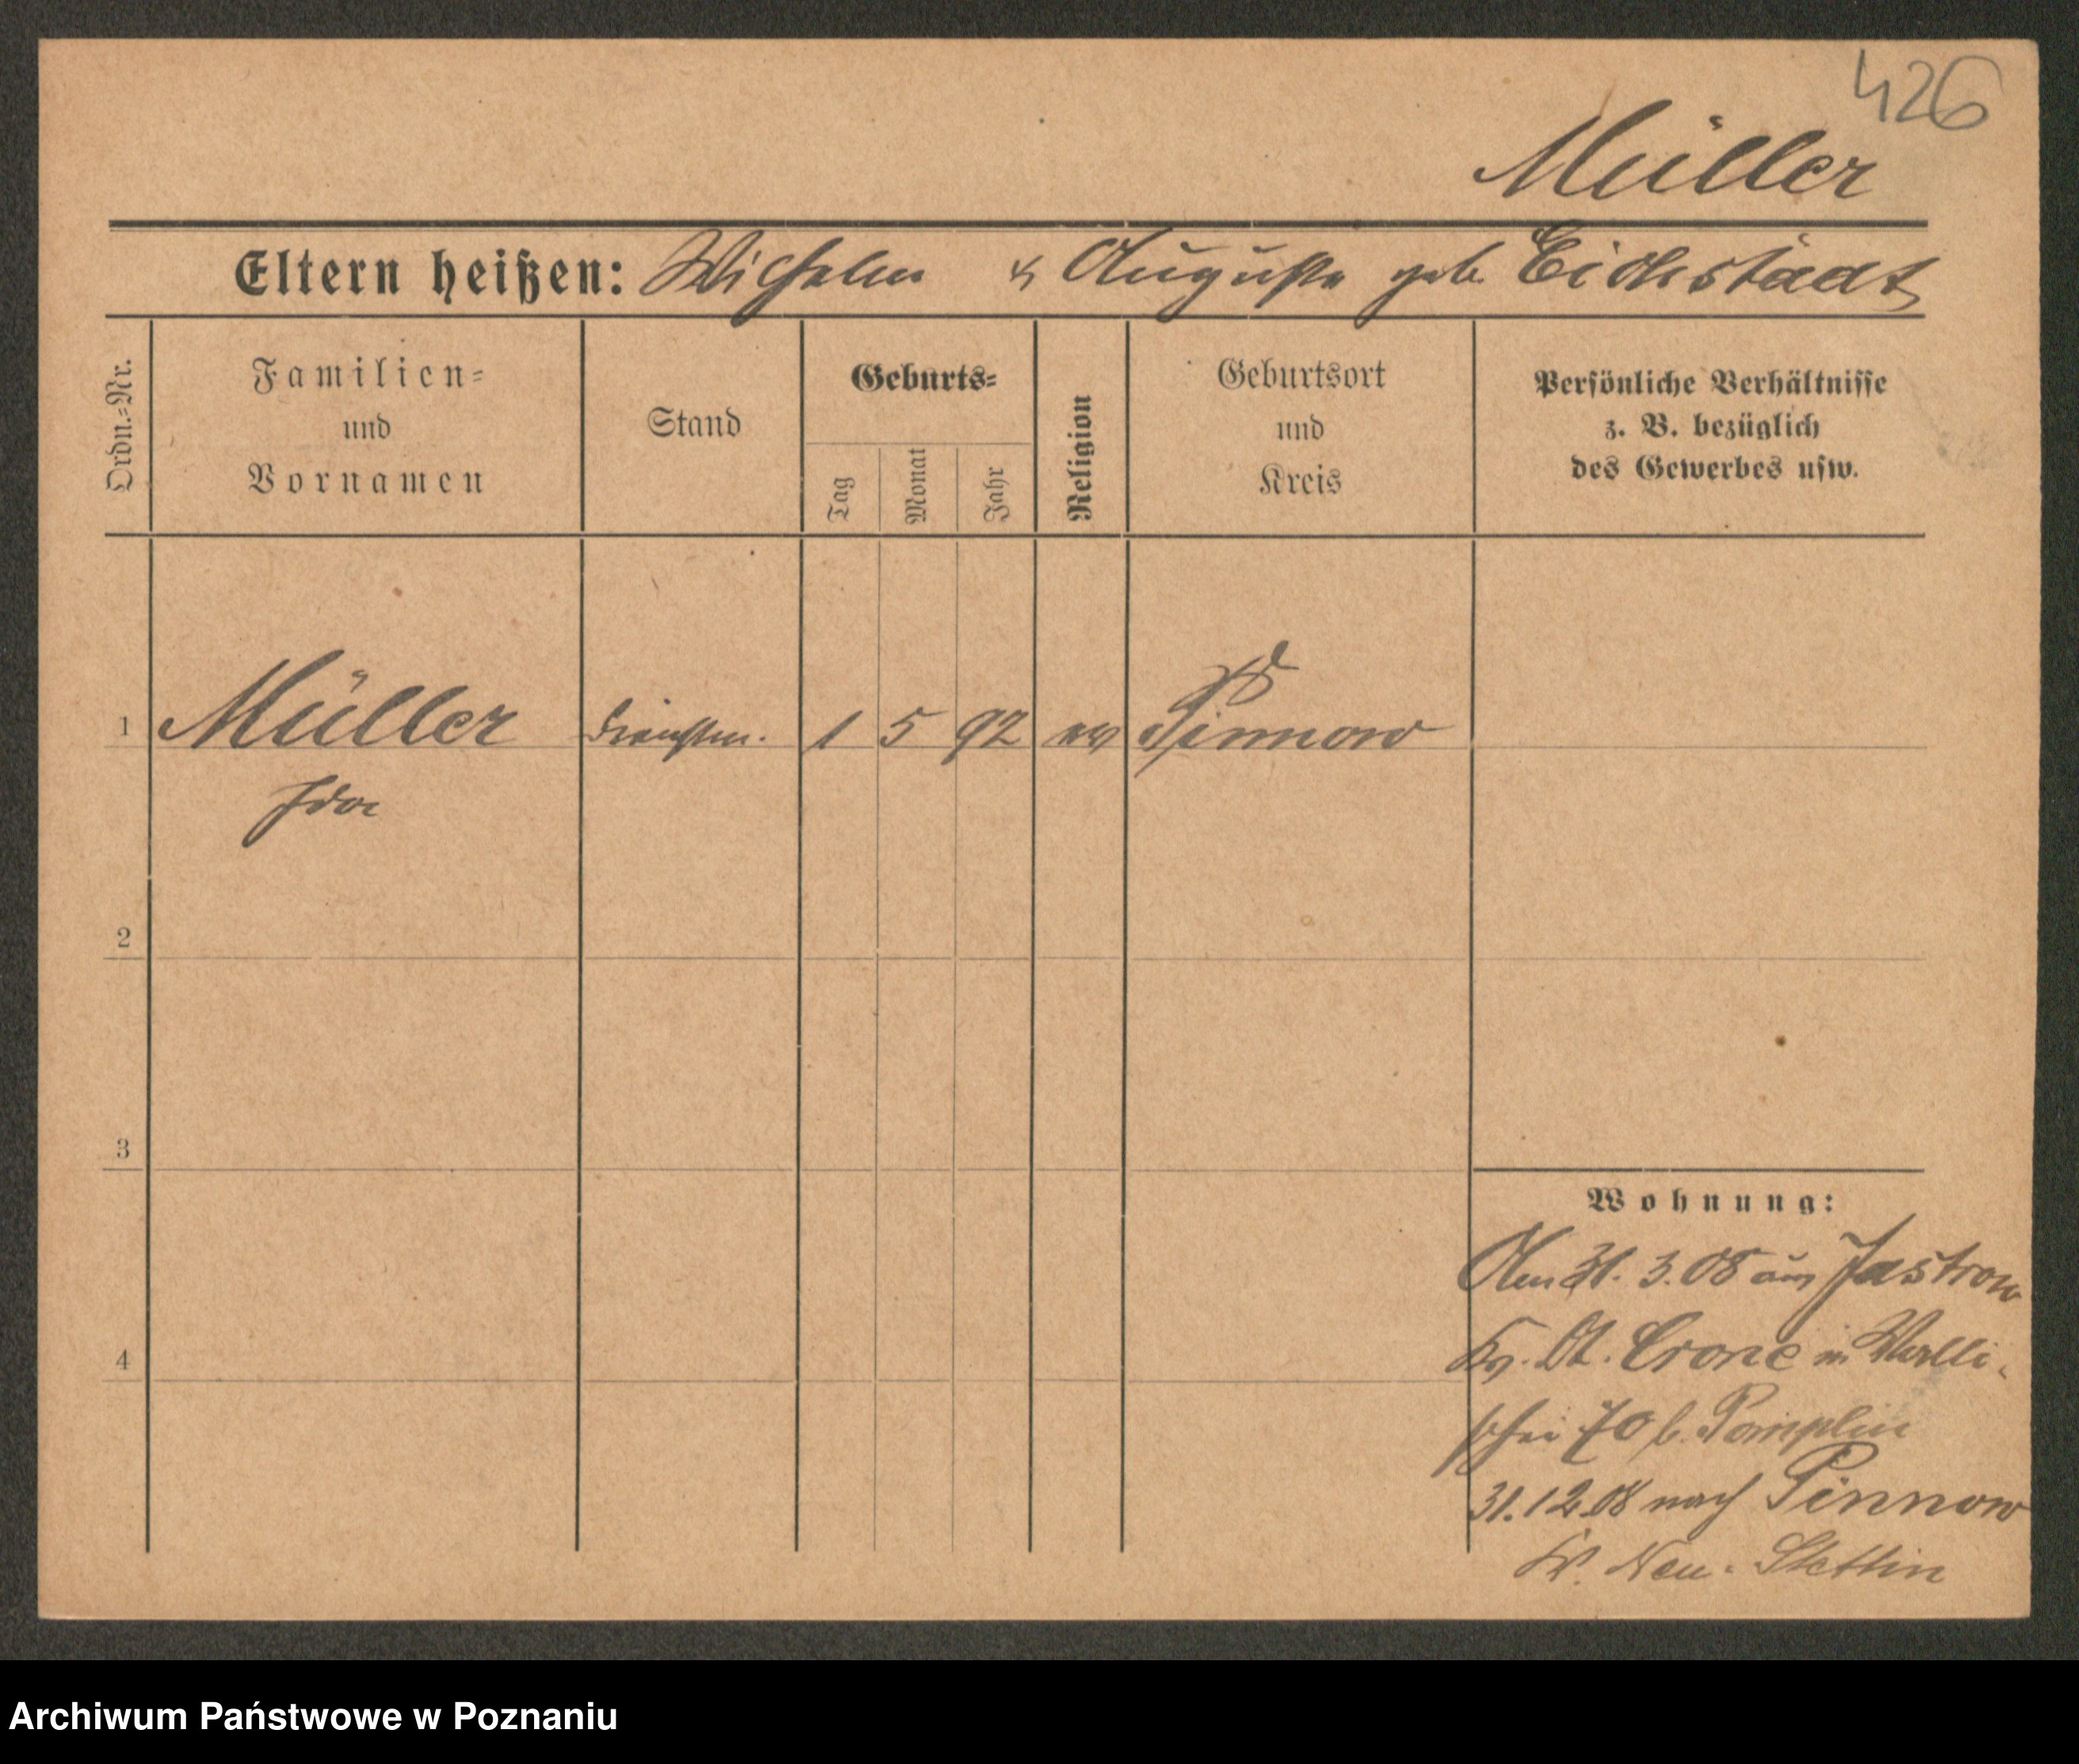 426
Müller
Eltern heißen: Wilhelm & Auguste geb. Eichstädt
Ordn.-Nr.
Familien-
und
Vornamen
Stand
Geburts-
Tag
Monat
Jahr
Religion
Geburtsort
und
Kreis
Persönliche Verhältnisse
z. B. bezüglich
des Gewerbes usw.
1 Müller Dienstm. 1 5 92 ev Pinnow
Ida
2
3
4
Wohnung:
Am 31. 3. 08 aus Jastrow
Kr. Dt. Crone in Walli-
schei 70 b. Pamplin
31.12.08 nach Pinnow
Kr. Neu-Stettin
Archiwum Państwowe w Poznaniu